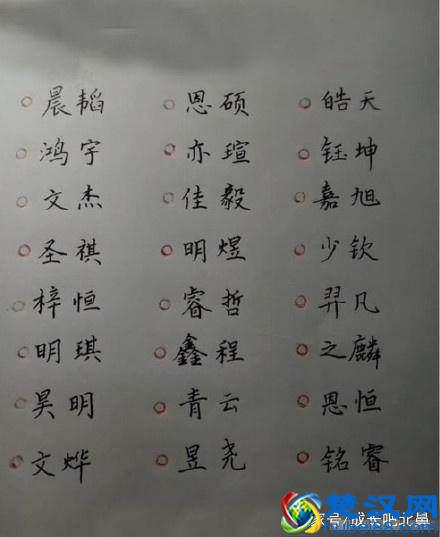 晨韬 恩硕 皓天
鸿宇 亦瑄 钰坤
文杰 佳毅 嘉旭
圣祺 明煜 少钦
梓恒 睿哲 羿凡
明琪 鑫程 之麟
昊明 青云 恩恒
文烨 昱尧 铭睿
楚汉网